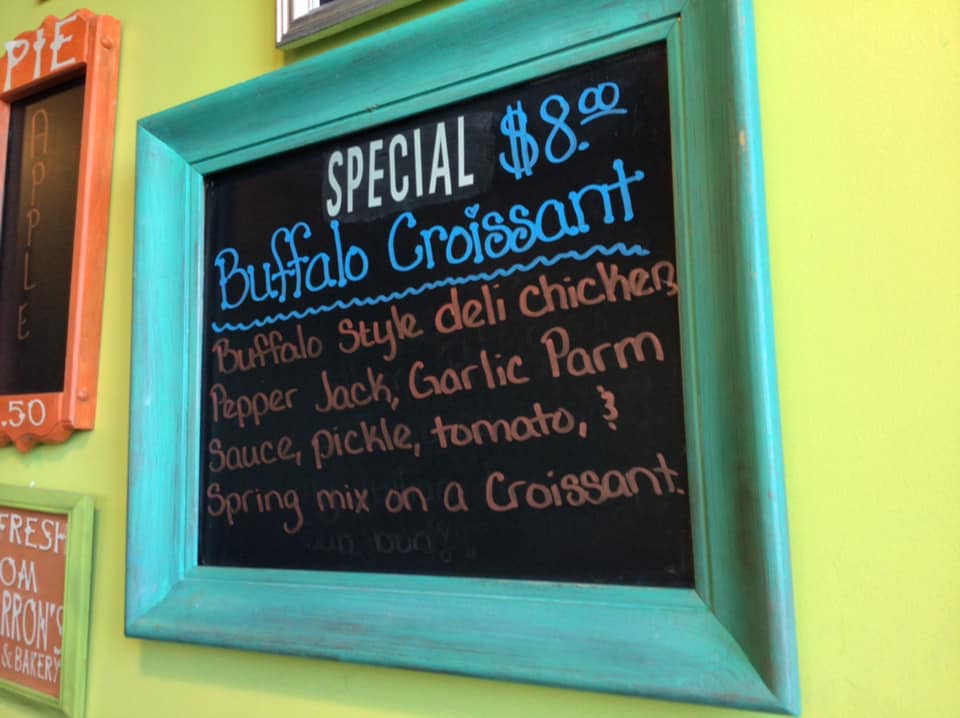 PIE
APPLE
.50
FRESH
OM
RRON'S
& BAKERY
SPECIAL $8.00
Buffalo Croissant
Buffalo Style deli chicken,
Pepper Jack, Garlic Parm
Sauce, pickle, tomato, &
Spring mix on a Croissant.